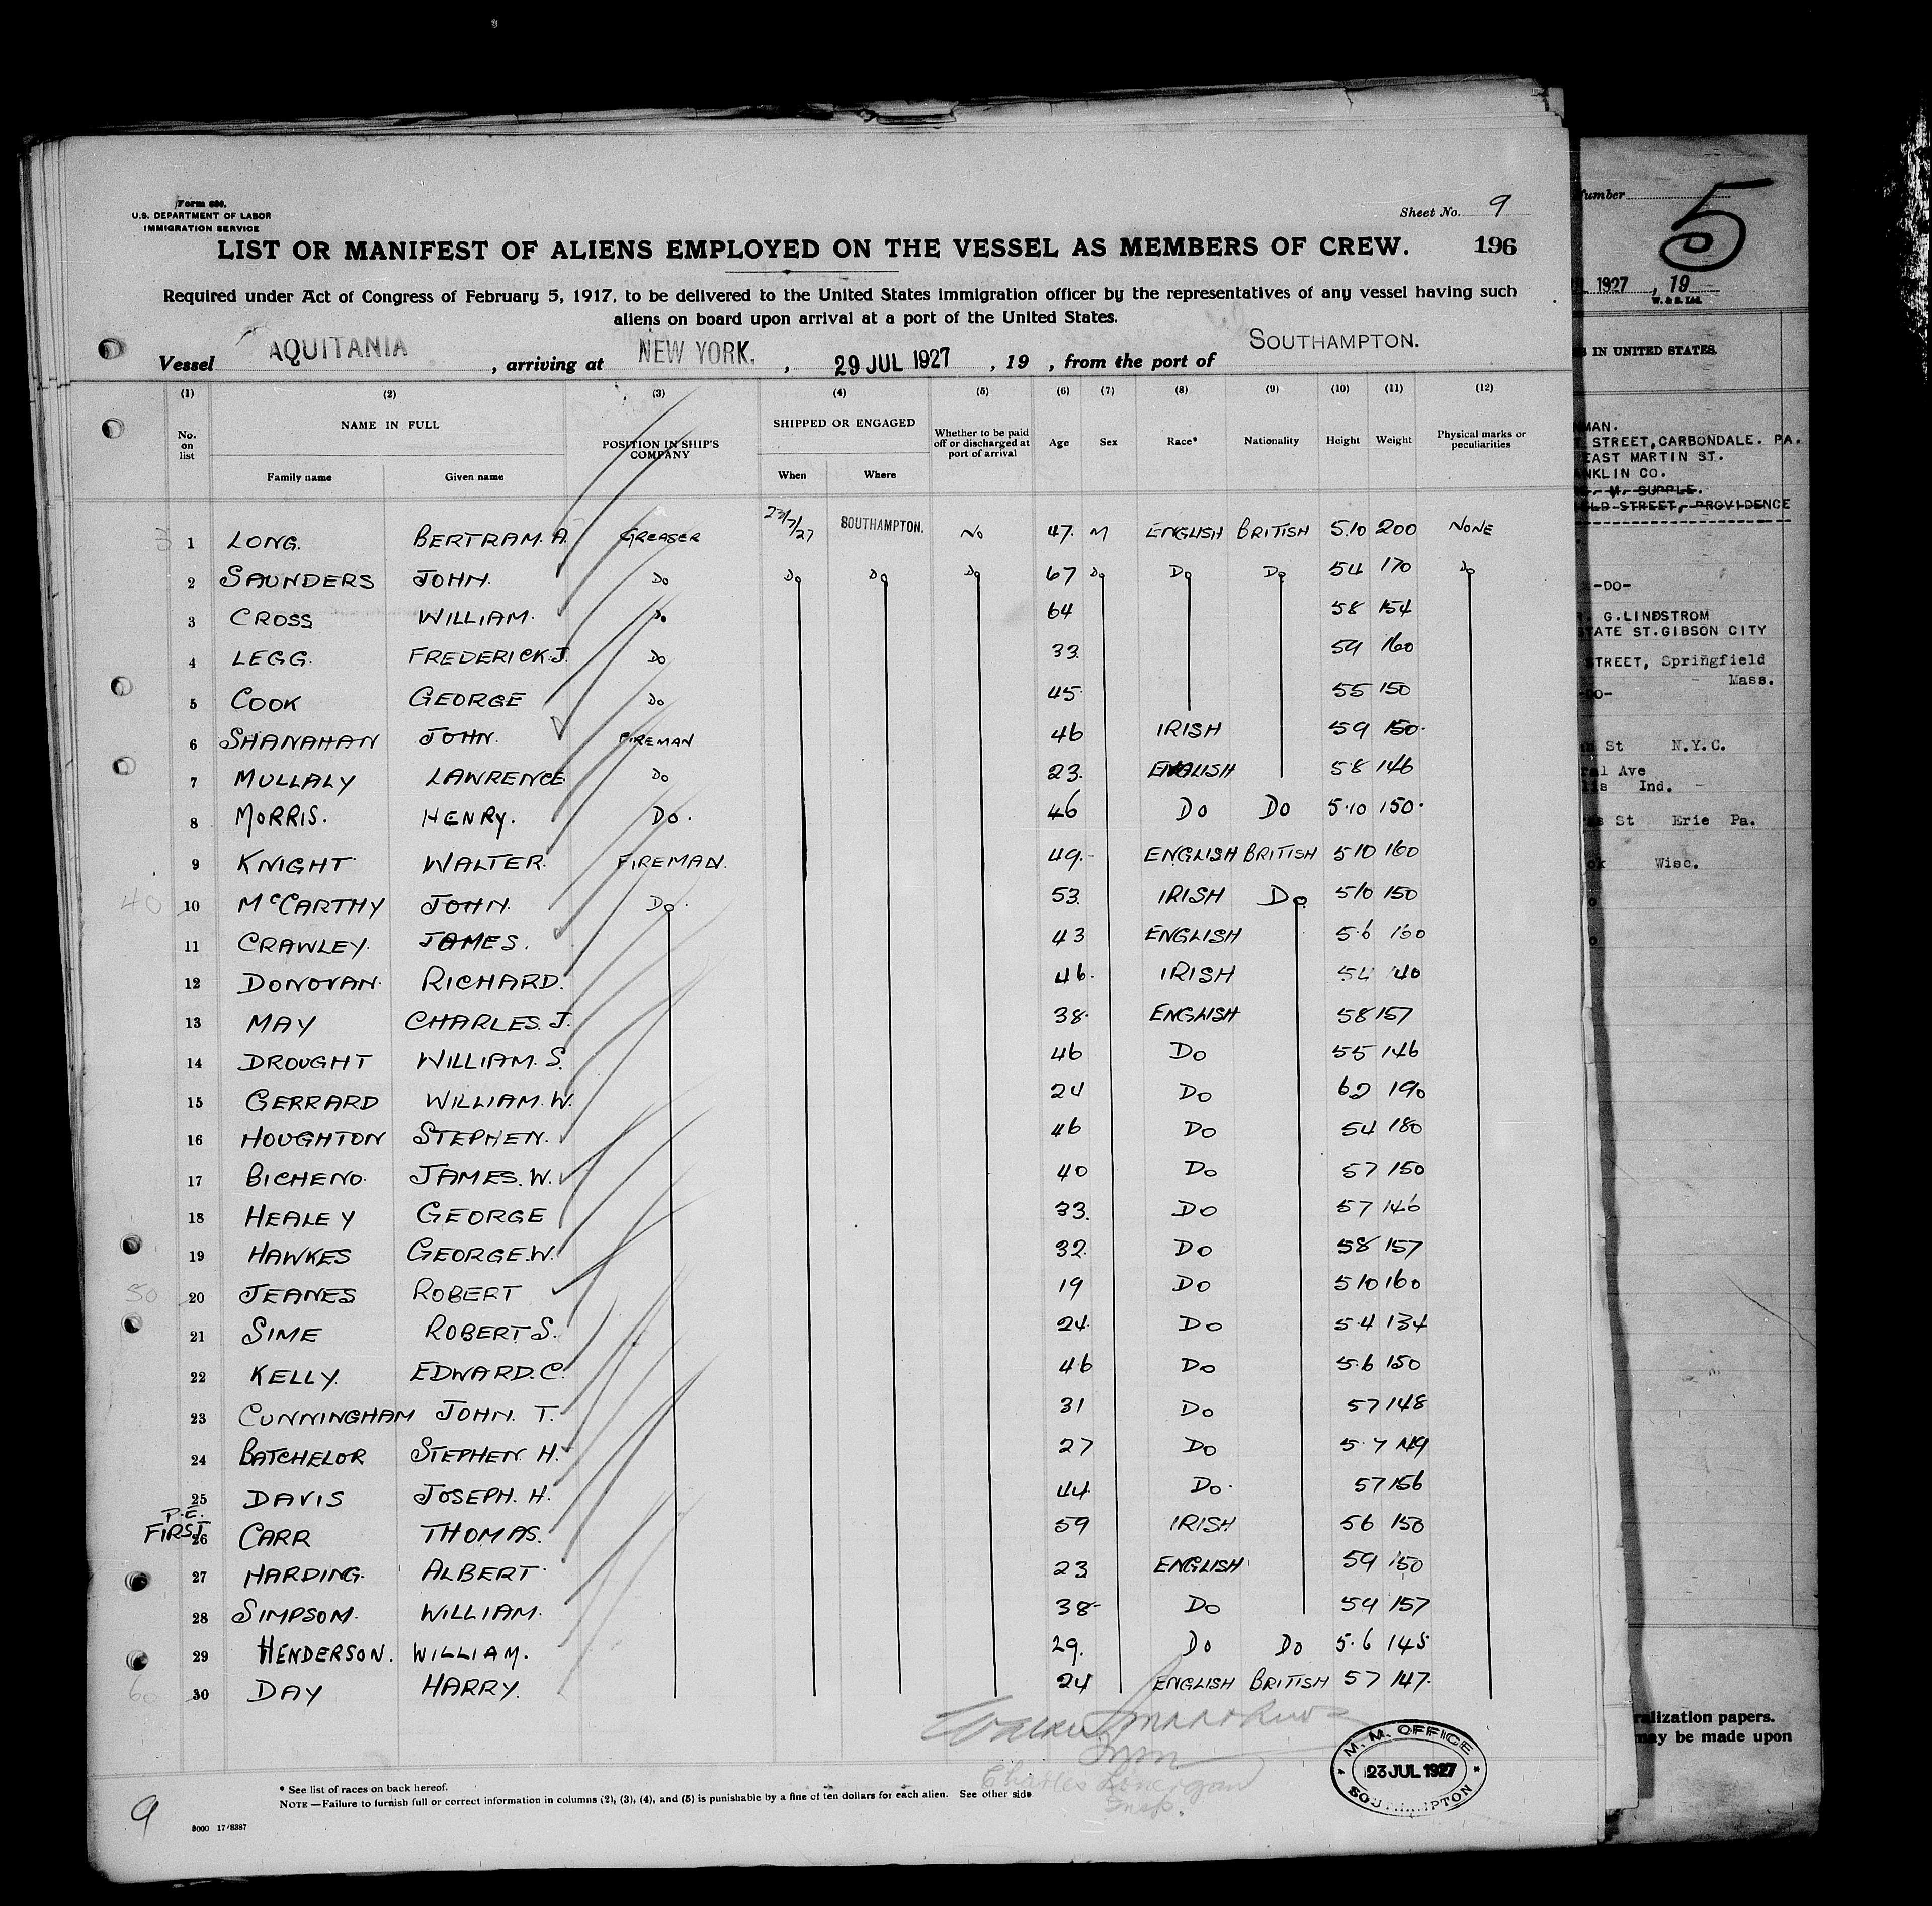 Form 680.
U.S. DEPARTMENT OF LABOR
IMMIGRATION SERVICE
Sheet No. 9
LIST OR MANIFEST OF ALIENS EMPLOYED ON THE VESSEL AS MEMBERS OF CREW. 196
Required under Act of Congress of February 5, 1917, to be delivered to the United States immigration officer by the representatives of any vessel having such
aliens on board upon arrival at a port of the United States.
Vessel AQUITANIA, arriving at NEW YORK., 29 JUL 1927, 19 , from the port of SOUTHAMPTON.
(1) (2) (3) (4) (5) (6) (7) (8) (9) (10) (11) (12)
No. on list NAME IN FULL POSITION IN SHIP'S COMPANY SHIPPED OR ENGAGED Whether to be paid off or discharged at port of arrival Age Sex Race* Nationality Height Weight Physical marks or peculiarities
Family name Given name When Where
1 LONG. BERTRAM. A GREASER 23/7/27 SOUTHAMPTON. No 47. M ENGLISH BRITISH 5.10 200 NONE
2 SAUNDERS JOHN. Do Do Do Do 67 Do Do Do 54 170 Do
3 CROSS WILLIAM. Do 64 58 154
4 LEGG. FREDERICK. J. Do 33. 59 160
5 COOK GEORGE Do 45. 55 150
6 SHANAHAN JOHN. FIREMAN 46 IRISH 59 150.
7 MULLALY LAWRENCE Do 23. ENGLISH 58 146
8 MORRIS. HENRY. Do. 46 Do Do 5.10 150.
9 KNIGHT WALTER. FIREMAN. 49. ENGLISH BRITISH 510 160
40 10 McCARTHY JOHN. Do. 53. IRISH Do 510 150
11 CRAWLEY. JAMES. 43 ENGLISH 5.6 160
12 DONOVAN. RICHARD. 46. IRISH 54 140
13 MAY CHARLES. J. 38. ENGLISH 58 157
14 DROUGHT WILLIAM. S. 46 Do 55 146
15 GERRARD WILLIAM. W. 24 Do 62 190
16 HOUGHTON STEPHEN. 46 Do 54 180
17 BICHENO. JAMES. W. 40 Do 57 150
18 HEALEY GEORGE 33. Do 57 146
19 HAWKES GEORGE. W. 32. Do 58 157
50 20 JEANES ROBERT 19 Do 510 160
21 SIME ROBERT S. 24. Do 5.4 134
22 KELLY. EDWARD. C. 46 Do 5.6 150
23 CUNNINGHAM JOHN. T. 31 Do 57 148
24 BATCHELOR STEPHEN. H. 27 Do 5.7 149
25 DAVIS JOSEPH. H. 44 Do. 57 156
P.E. FIRST 26 CARR THOMAS. 59 IRISH 56 150
27 HARDING. ALBERT. 23 ENGLISH 59 150
28 SIMPSOM. WILLIAM. 38- Do 59 157
29 HENDERSON. WILLIAM. 29. Do Do 5.6 145
60 30 DAY HARRY. 24 ENGLISH BRITISH 57 147.
M. M. OFFICE
23 JUL 1927
SOUTHAMPTON
* See list of races on back hereof.
NOTE—Failure to furnish full or correct information in columns (2), (3), (4), and (5) is punishable by a fine of ten dollars for each alien. See other side
9
5000 17/8387
5
1927, 19
W. & S. Ltd.
IN UNITED STATES.
STREET, CARBONDALE. PA.
EAST MARTIN ST.
KLIN CO.
M. SUPPLE.
STREET, PROVIDENCE
-DO-
G. LINDSTROM
STATE ST. GIBSON CITY
STREET, Springfield
Mass.
-DO-
St N.Y.C.
Ave
Ind.
St Erie Pa.
Wisc.
papers.
may be made upon